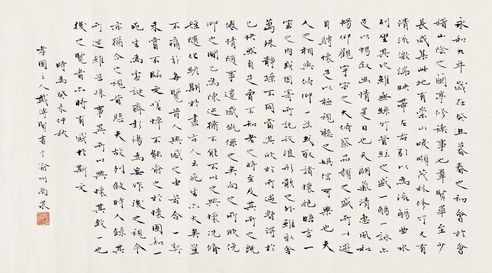 永和九年歲在癸丑暮春之初會於會
稽山陰之蘭亭修稧事也羣賢畢至少
長咸集此地有崇山峻領茂林修竹又有
清流激湍映帶左右引以為流觴曲水
列坐其次雖無絲竹管弦之盛一觴一詠亦
足以暢敘幽情是日也天朗氣清惠風和
暢仰觀宇宙之大俯察品類之盛所以遊
目騁懷足以極視聽之娛信可樂也夫
人之相與俯仰一世或取諸懷抱悟言一
室之內或因寄所託放浪形骸之外雖取舍
萬殊靜躁不同當其欣於所遇暫得於
己快然自足曾不知老之將至及其所之既
倦情隨事遷感慨係之矣向之所欣俛
仰之間已為陳迹猶不能不以之興懷況脩
短隨化終期於盡古人云死生亦大矣豈
不痛哉每覽昔人興感之由若合一契
未嘗不臨文嗟悼不能喻之於懷固知一
死生為虛誕齊彭殤為妄作後之視今
亦猶今之視昔悲夫故列敘時人錄其
所述雖世殊事異所以興懷其致一也
後之覽者亦將有感於斯文
時為癸未仲秋